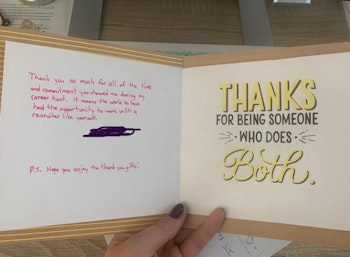 Thank you so much for all of the time
and commitment you showed me during my
career hunt. It means the world to have
had the opportunity to work with a
recruiter like yourself.
P.S. Hope you enjoy the thank you gifts!
THANKS
FOR BEING SOMEONE
WHO DOES
Both.